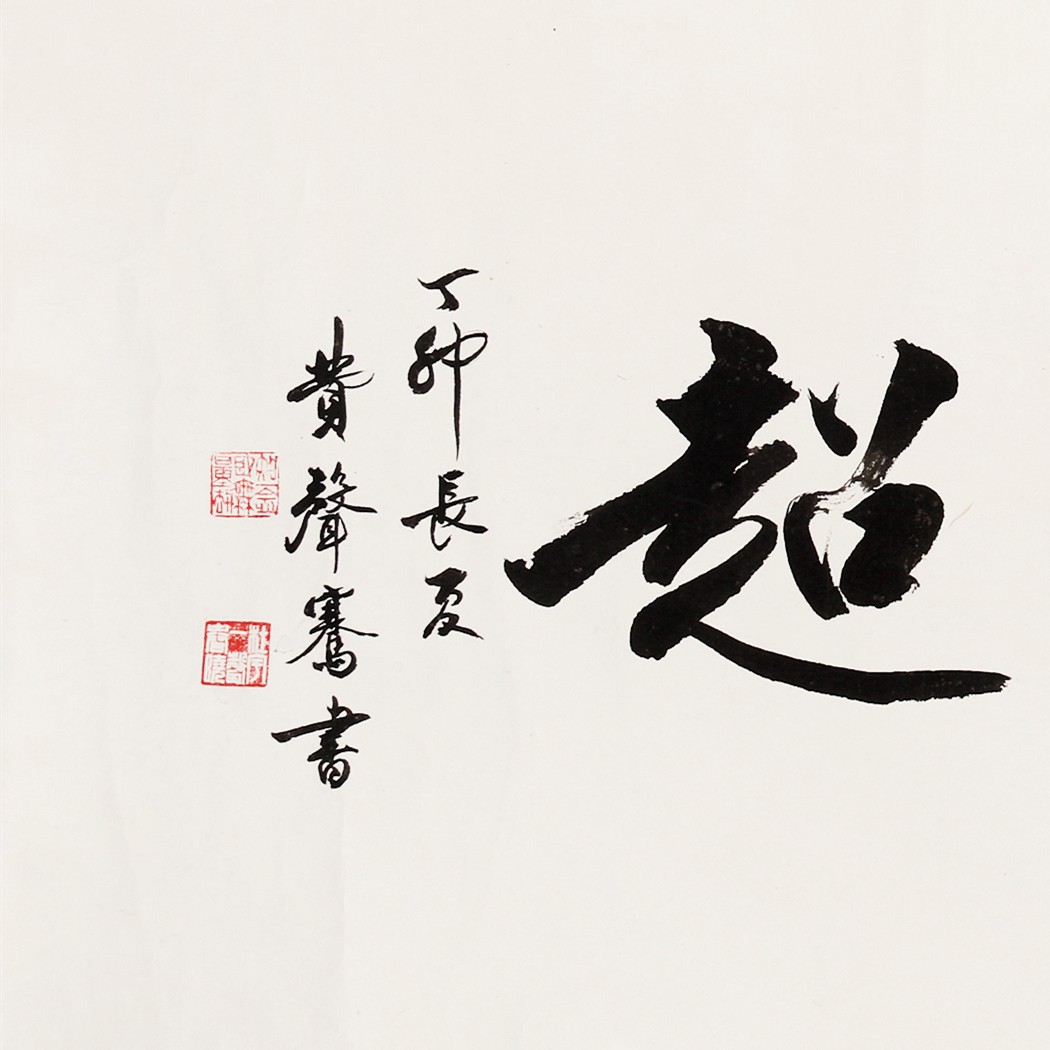 超
丁卯長夏
費聲騫書